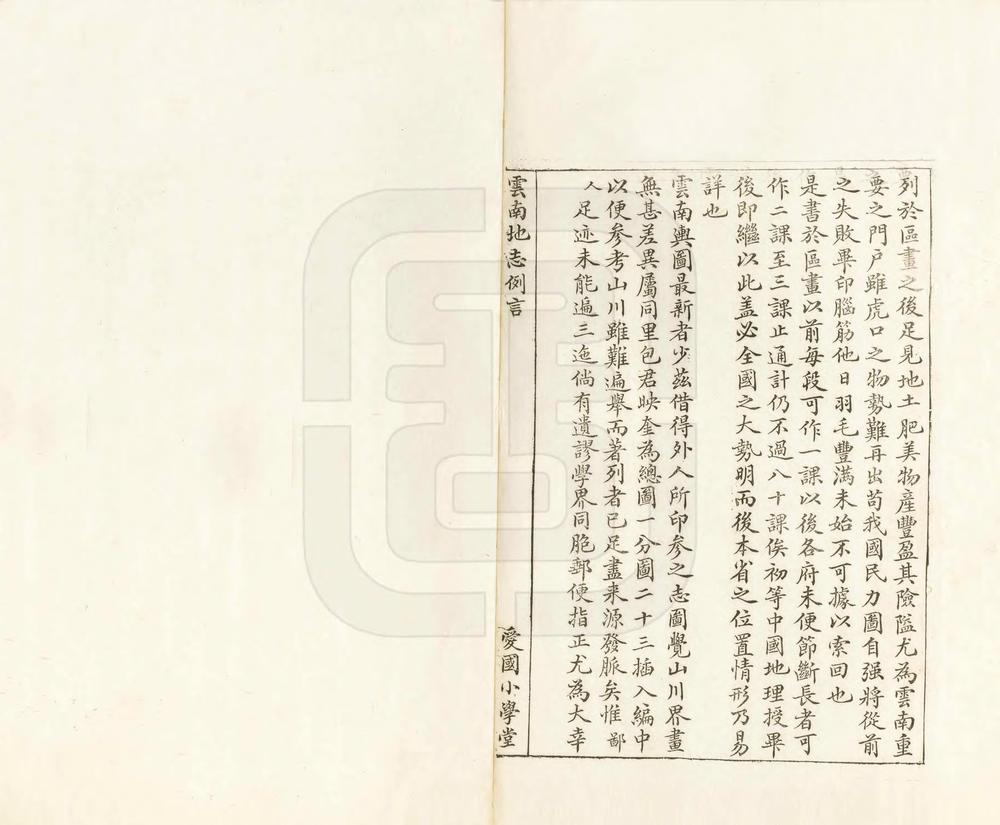 列於區畫之後足見地土肥美物產豐盈其險隘尤為雲南重
要之門户雖虎口之物勢難再出苟我國民力圖自强將從前
之失敗畢印腦筋他日羽毛豐滿未始不可據以索回也
是書於區畫以前每段可作一課以後各府未便節斷長者可
作二課至三課止通計仍不過八十課俟初等中國地理授畢
後即繼以此盖必全國之大勢明而後本省之位置情形乃易
詳也
雲南輿圖最新者少茲借得外人所印參之志圖覺山川界畫
無甚差異屬同里包君映奎為總圖一分圖二十三插入編中
以便參考山川雖難遍舉而著列者已足盡来源發脈矣惟鄙
人足迹未能遍三迤倘有遺謬學界同胞郵便指正尤為大幸
雲南地志例言
愛國小學堂